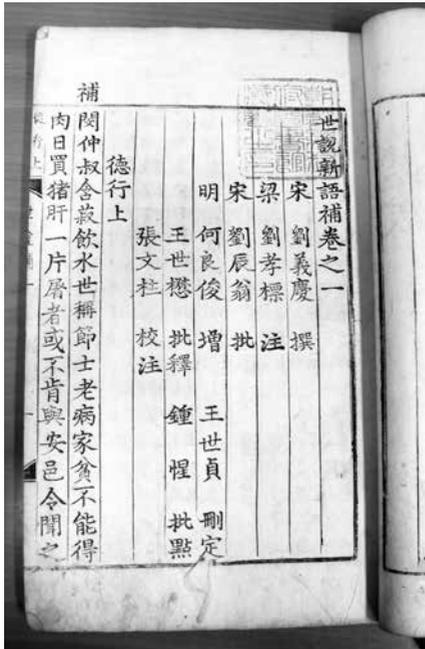 世說新語補卷之一
宋 劉義慶 撰
梁 劉孝標 注
宋 劉辰翁 批
明 何良俊 增 王世貞 刪定
王世懋 批釋 鍾惺 批點
張文柱 校注
德行上
補 閔仲叔含菽飲水世稱節士老病家貧不能得
肉日買猪肝一片屠者或不肯與安邑令聞之